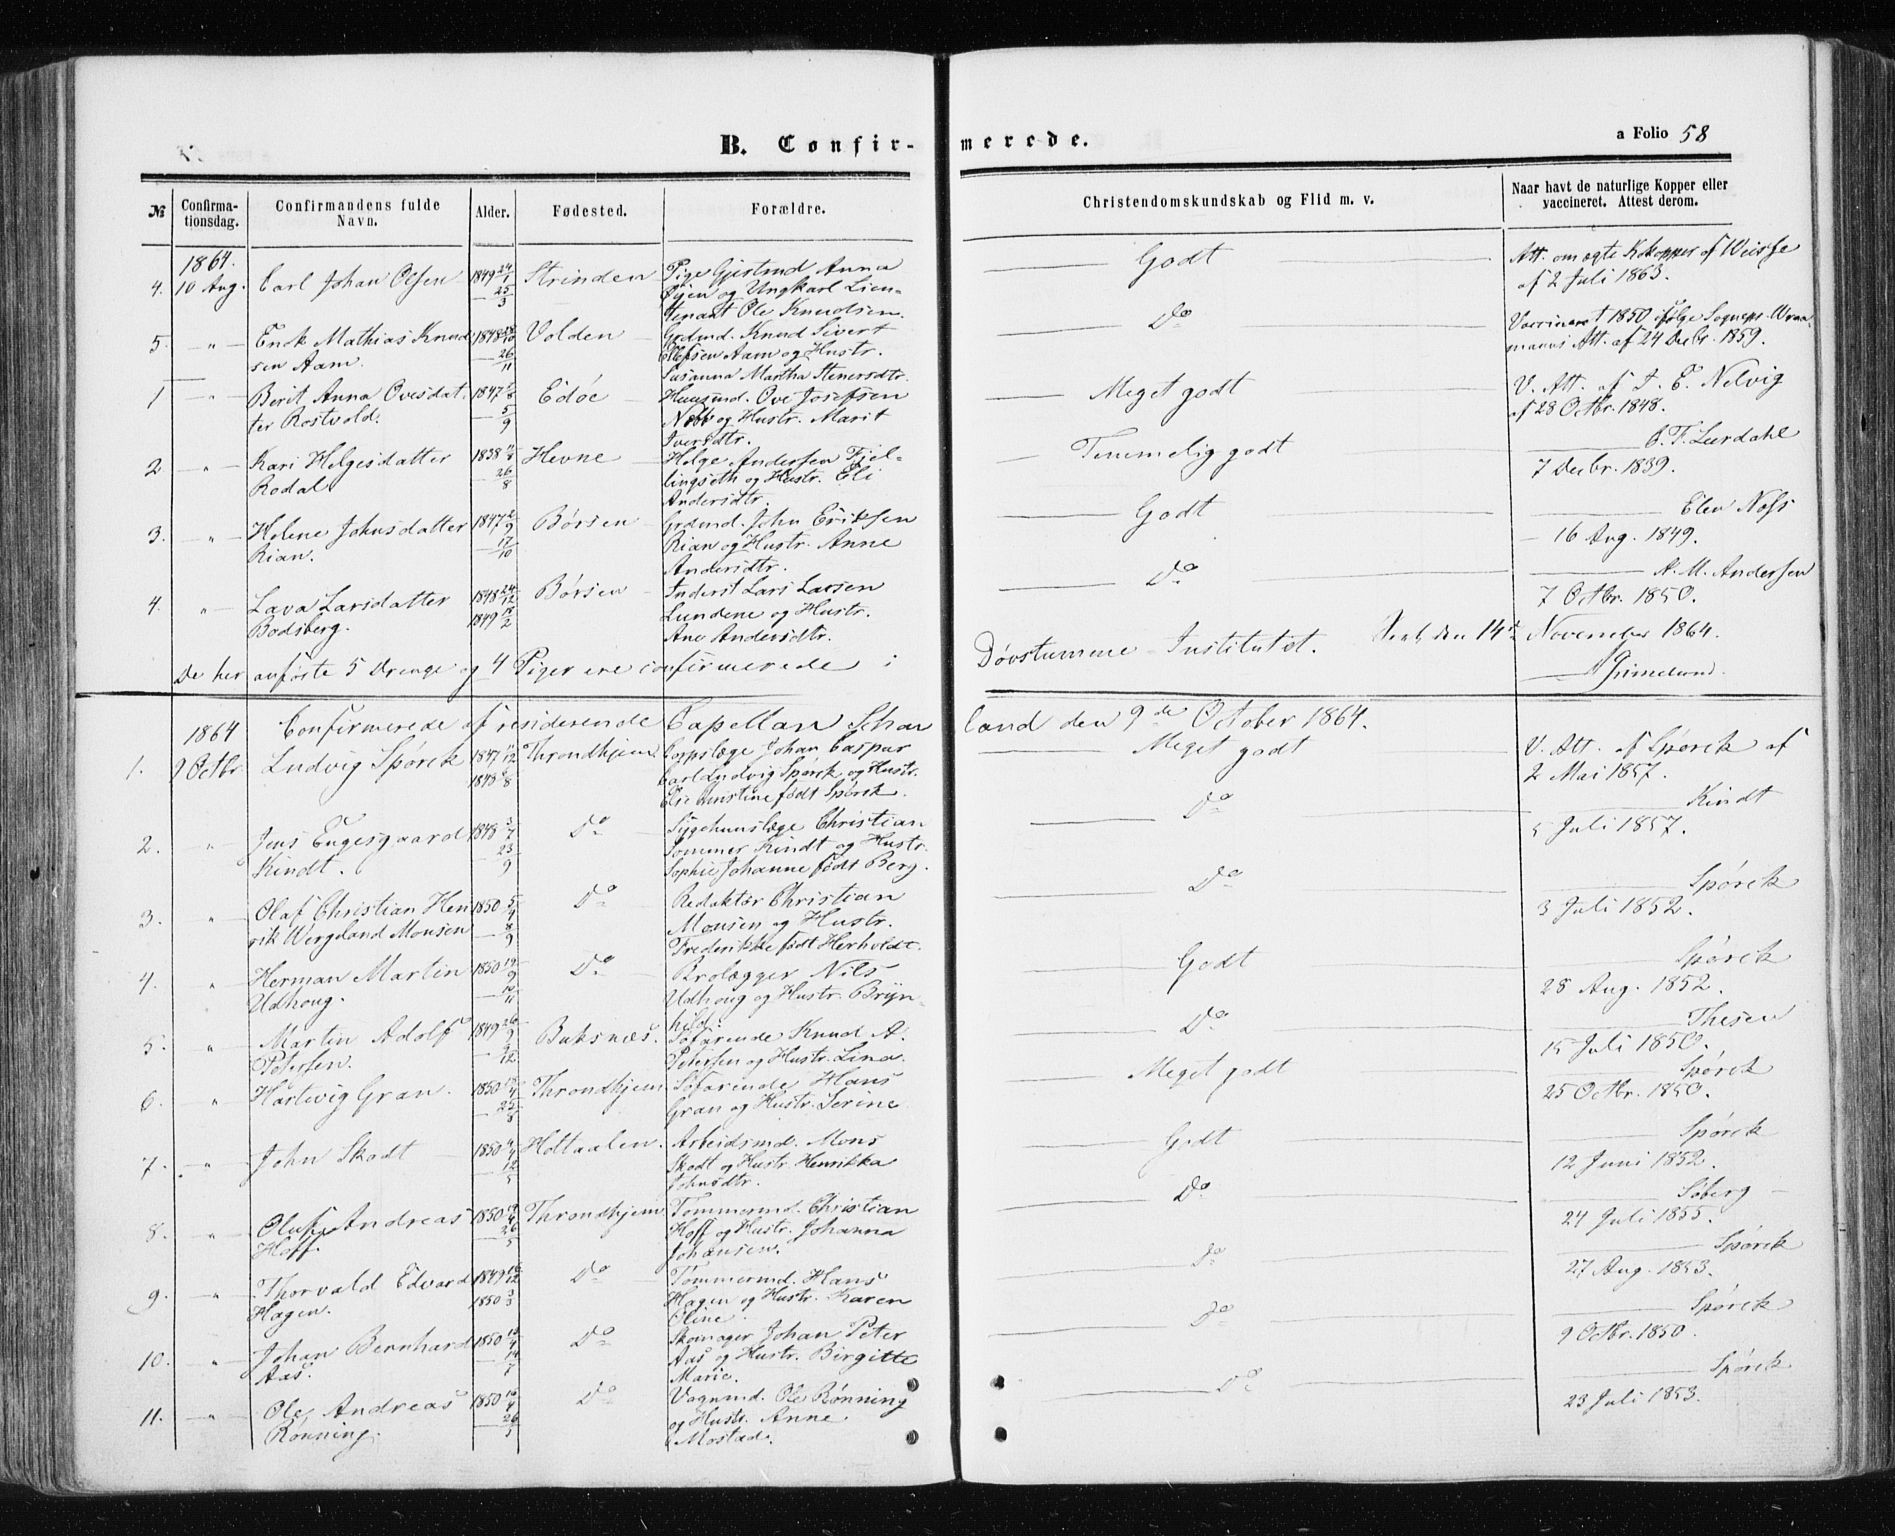 B. Confir-
merede.
a Folio 58
№
Confirma-
tionsdag.
Confirmandens fulde
Navn.
Alder.
Fødested.
Forældre.
Christendomskundskab og Flid m. v.
Naar havt de naturlige Kopper eller
vaccineret. Attest derom.
1864.
4. 10 Aug. Carl Johan Olsen 1849 24/1 25/3 Strinden Pige Gjertrud Anna
Øyen og Ungkarl Lieu-
tenant Ole Knudsen.
Godt
Att. om ægte Kokopper af Weisse
af 2 Juli 1863.
5. " Enok Mathias Knud- 1848 26/11 Volden Grdmd. Knud Sivert
sen Aam. Olefsen Aam og Hustr.
Susanna Martha Stenersdtr.
Do
Vaccineret 1850 ifølge Sognepr.
Att. af 24 Decbr. 1859.
1 " Berit Anna Ovesdat- 1847 5/9 Edøe Huusmd. Ove Josefsen
ter Rostvold. og Hustr. Marit
Iversdtr.
Meget godt
V. Att. af T. E. Nelvig
af 28 Octbr. 1848.
2 " Kari Helgesdatter 1838 26/8 Hevne Helge Andersen Fjel-
Rodal lingseth og Hustr. Eli
Andersdtr.
Temmelig godt
O. T. Leerdahl
7 Decbr. 1839.
3. " Helene Johnsdatter 1847 2/9 17/10 Børsen Grdmd. John Eriksen
Rian. Rian og Hustr. Anne
Andersdtr.
Godt
Elev Noss
16 Aug. 1849.
4. " Lava Larsdatter 1848 24/12 1849 18/2 Børsen Inderst Lars Larsen
Bodsberg. Lundene og Hustr.
Ane Andersdtr.
Do
A. M. Andersen
7 Octbr. 1850.
De her anførte 5 Drenge og 4 Piger ere confirmerede i Døvstumme-Institutet. den 14de November 1864.
A Grimelund.
1864 Confirmerede af residerende Capellan Schar land den 9de October 1864.
1. 9 Octbr Ludvig Spørck 1847 11/12 1848 6/8 Throndhjem Corpslæge Johan Caspar
Carl Ludvig Spørck og Hustr.
Else Christine født Spørck.
Meget godt
V. Att. af Spørck af
2 Mai 1857.
2. " Jens Eugesgaard 1848 3/7 23/9 Do Sygehuuslæge Christian
Kindt. Sommer Kindt og Hustr.
Sophie Johanne født Berg.
Do
Kindt
5 Juli 1857.
3. " Olaf Christian Hen 1850 5/4 8/9 Do Redaktør Christian
rik Wergeland Monsen Monsen og Hustr.
Frederikke født Herholdt.
Do
Spørck
3 Juli 1852.
4. " Herman Martin 1850 19/9 10/11 Do Brolægger Nils
Udhoug. Udhoug og Hustr. Bryn-
hild.
Godt
Spørck
28 Aug. 1852.
5. " Martin Adolf 1849 26/9 9/12 Buksnæs. Søfarende Knud A.
Petersen. Petersen og Hustr. Lina.
Do
Thesen
15 Juli 1850.
6. " Hartvig Gran. 1850 19/4 25/8 Throndhjem Søfarende Hans
Gran og Hustr. Serine
Meget godt
Spørck
25 Octbr. 1850.
7. " John Skodt 1850 4/4 12/5 Holtaalen. Arbeidsmd. Mons
Skodt og Hustr. Henrikka
Johnsdtr.
Godt
Spørck
12 Juni 1852.
8. " Oluf Andreas 1850 19/4 26/5 Throndhjem Tømmermd. Christian
Hoff. Hoff og Hustr. Johanna
Johansen.
Do
Søberg
24 Juli 1855.
9. " Thorvald Edvard 1849 16/12 1850 3/3 Do Tømmermd. Hans
Hagen. Hagen og Hustr. Karen
Oline.
Do
Spørck
27 Aug. 1853.
10. " Johan Bernhard 1850 13/4 14/7 Do Skomager Johan Peter
Aas. Aas og Hustr. Birgitte
Marie.
Do
Spørck
9 Octbr. 1850.
11. " Ole Andreas 1850 16/4 26/5 Do Vognmd. Ole Rønning
Rønning. og Hustr. Anne
Mostad.
Do
Spørck
23 Juli 1853.